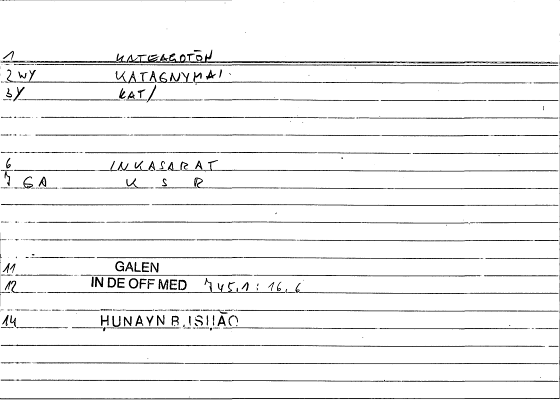 1 KATEAGOTŌN
2 WY KATAGNYMAI
3 Y KAT/
6 INKASARAT
7 GA K S R
11 GALEN
12 IN DE OFF MED 745.1 : 16.6
14 ḤUNAYN B. ISḤĀQ